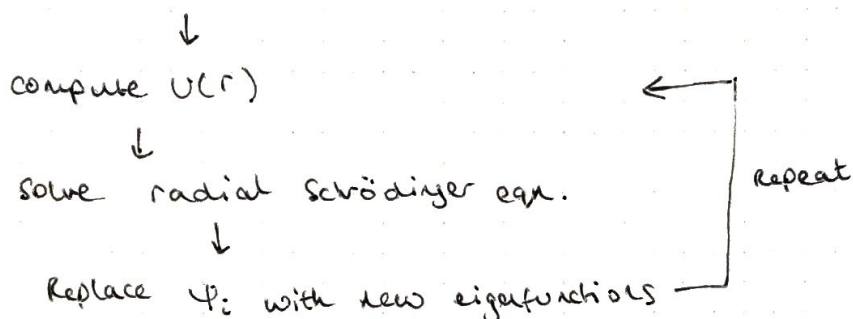 ↓
compute U(r)
↓
solve radial Schrödinger eqn.
repeat
↓
Replace Ψᵢ with new eigenfunctions